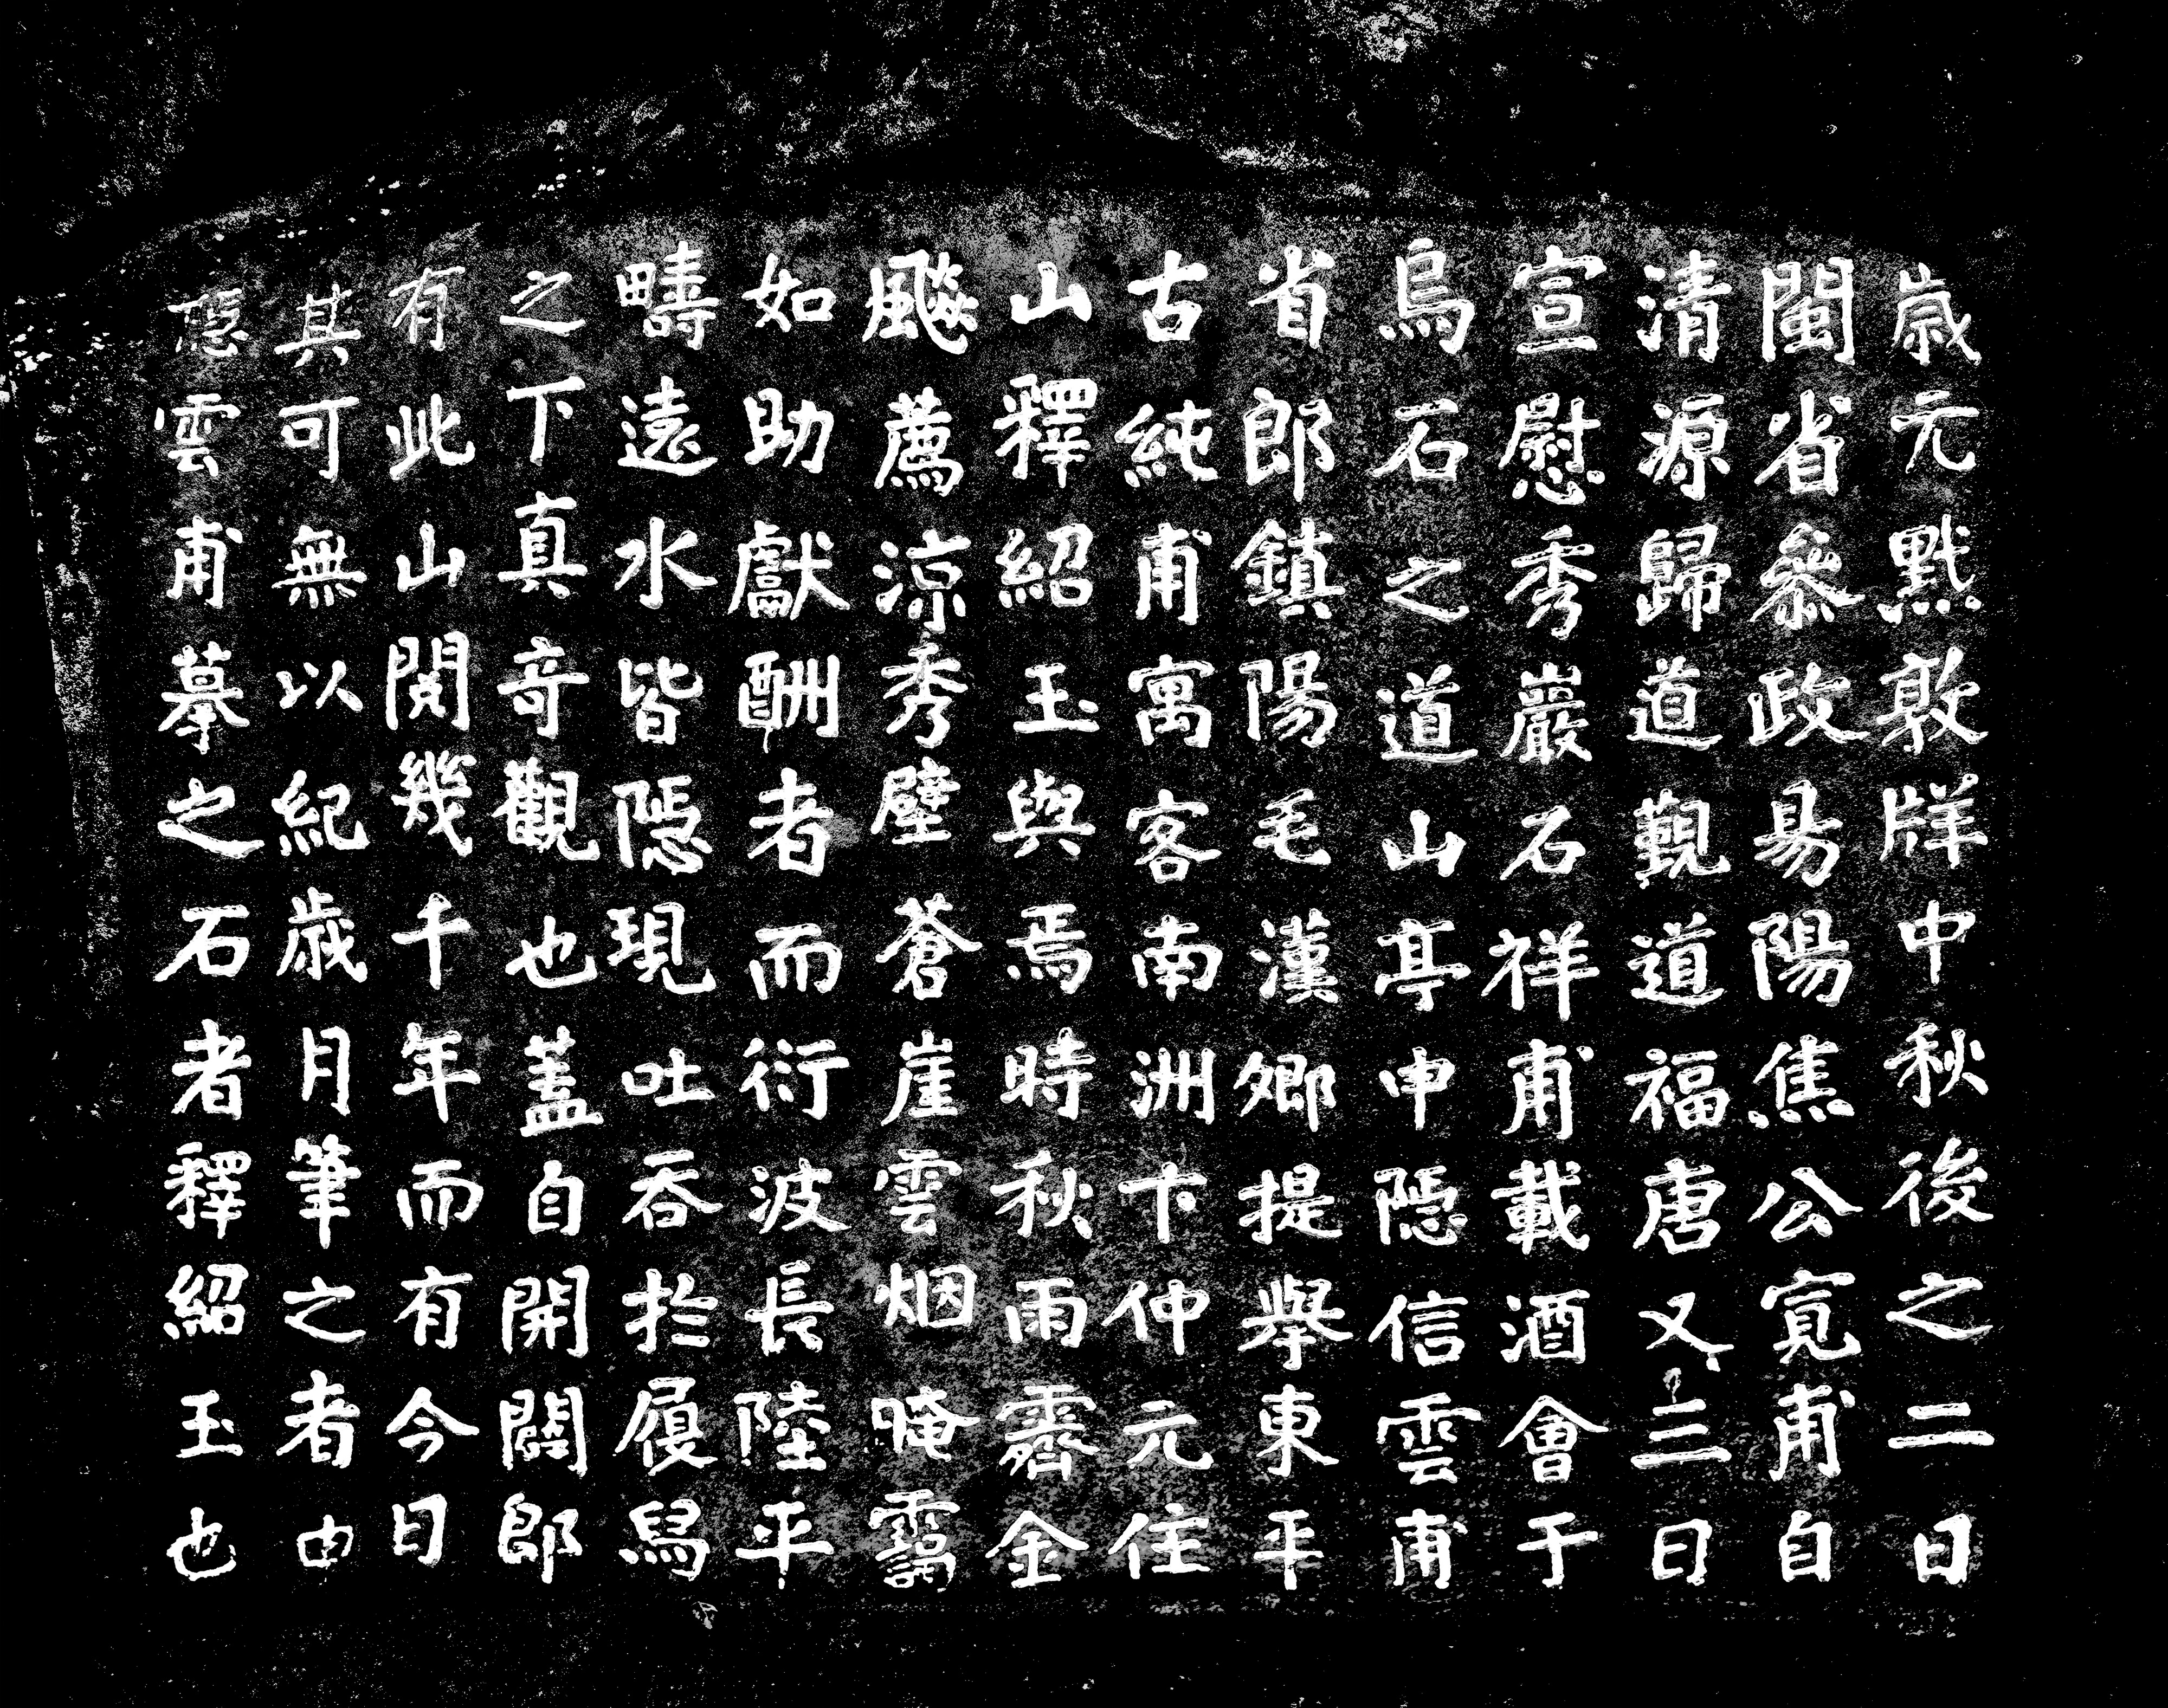 歲元黓敦牂中秋後之二日
閩省參政昜陽焦公寬甫自
清源歸道觀道福唐又三日
宣慰秀巖石祥甫載酒會于
烏石之道山亭申隱信雲甫
省郎鎮陽毛漢鄉提舉東平
古純甫寓客南洲卞仲元住
山釋紹玉與焉時秋雨霽金
飈薦涼秀壁蒼崖雲烟晻靄
如助獻酬者而衍波長陸平
疇遠水皆隱現吐吞於履舄
之下真奇觀也蓋自開闢郎
有此山閱幾千年而有今日
其可無以紀歲月筆之者由
隱雲甫摹之石者釋紹玉也